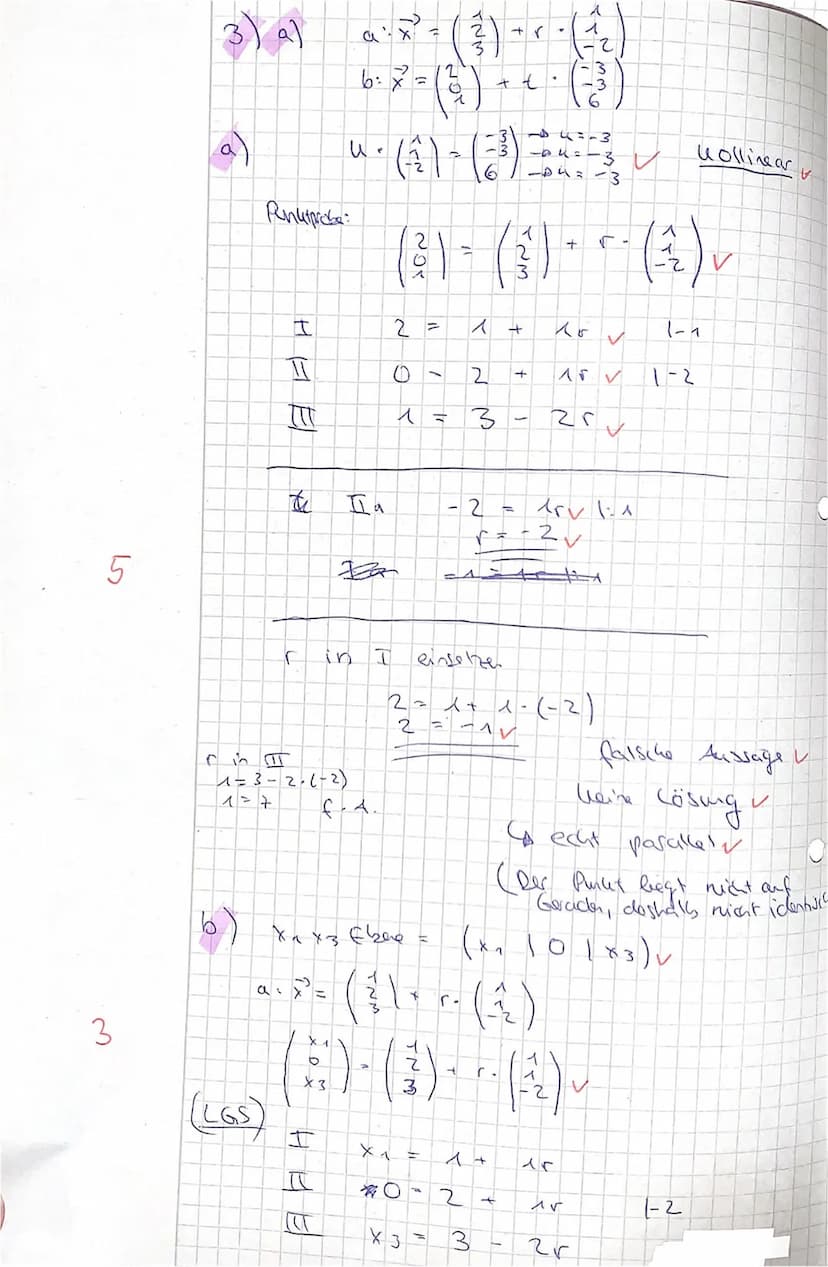 3) a) a: x⃗ = (1 2 3) + r · (1 1 -2)
b: x⃗ = (2 0 1) + t · (-3 -3 6)
a) u · (1 1 -2) = (-3 -3 6) → u = -3 → u = -3 → u = -3 ✓ kollinear ✓
Punktprobe:
(2 0 1) = (1 2 3) + r · (1 1 -2) ✓
I 2 = 1 + 1r ✓ |-1
II 0 = 2 + 1r ✓ |-2
III 1 = 3 - 2r ✓
IIa -2 = 1r ✓ |:1
r = -2 ✓
5
r in I einsetzen
2 = 1 + 1 · (-2)
2 = -1 ✓
falsche Aussage ✓
r in III
1 = 3 - 2 · (-2)
1 = 7 f. A.
keine Lösung ✓
↳ echt parallel ✓
(Der Punkt liegt nicht auf
Geraden, deshalb nicht identisch
b) x1 x3 Ebene = (x1 | 0 | x3) ✓
a: x⃗ = (1 2 3) + r · (1 1 -2)
3
(x1 0 x3) = (1 2 3) + r · (1 1 -2) ✓
(LGS)
I x1 = 1 + 1r
II 0 = 2 + 1r |-2
III x3 = 3 - 2r